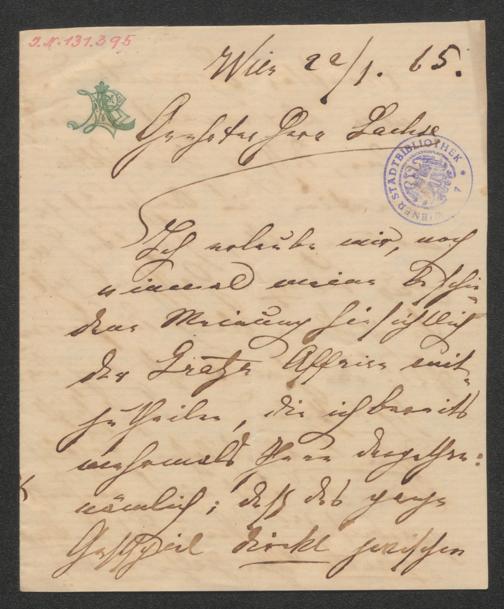 J.N. 131.395
Wien 22/1. 65.
Geehrter Herr Sachse
WIENER STADTBIBLIOTHEK
Ich erlaube mir, noch
einmal meine beschei-
dene Meinung hinsichtlich
der Gratzer Affaire mit-
zutheilen, die ich bereits
mehrmals Herrn
nämlich; daß das ganze
Gastspiel direkt zwischen